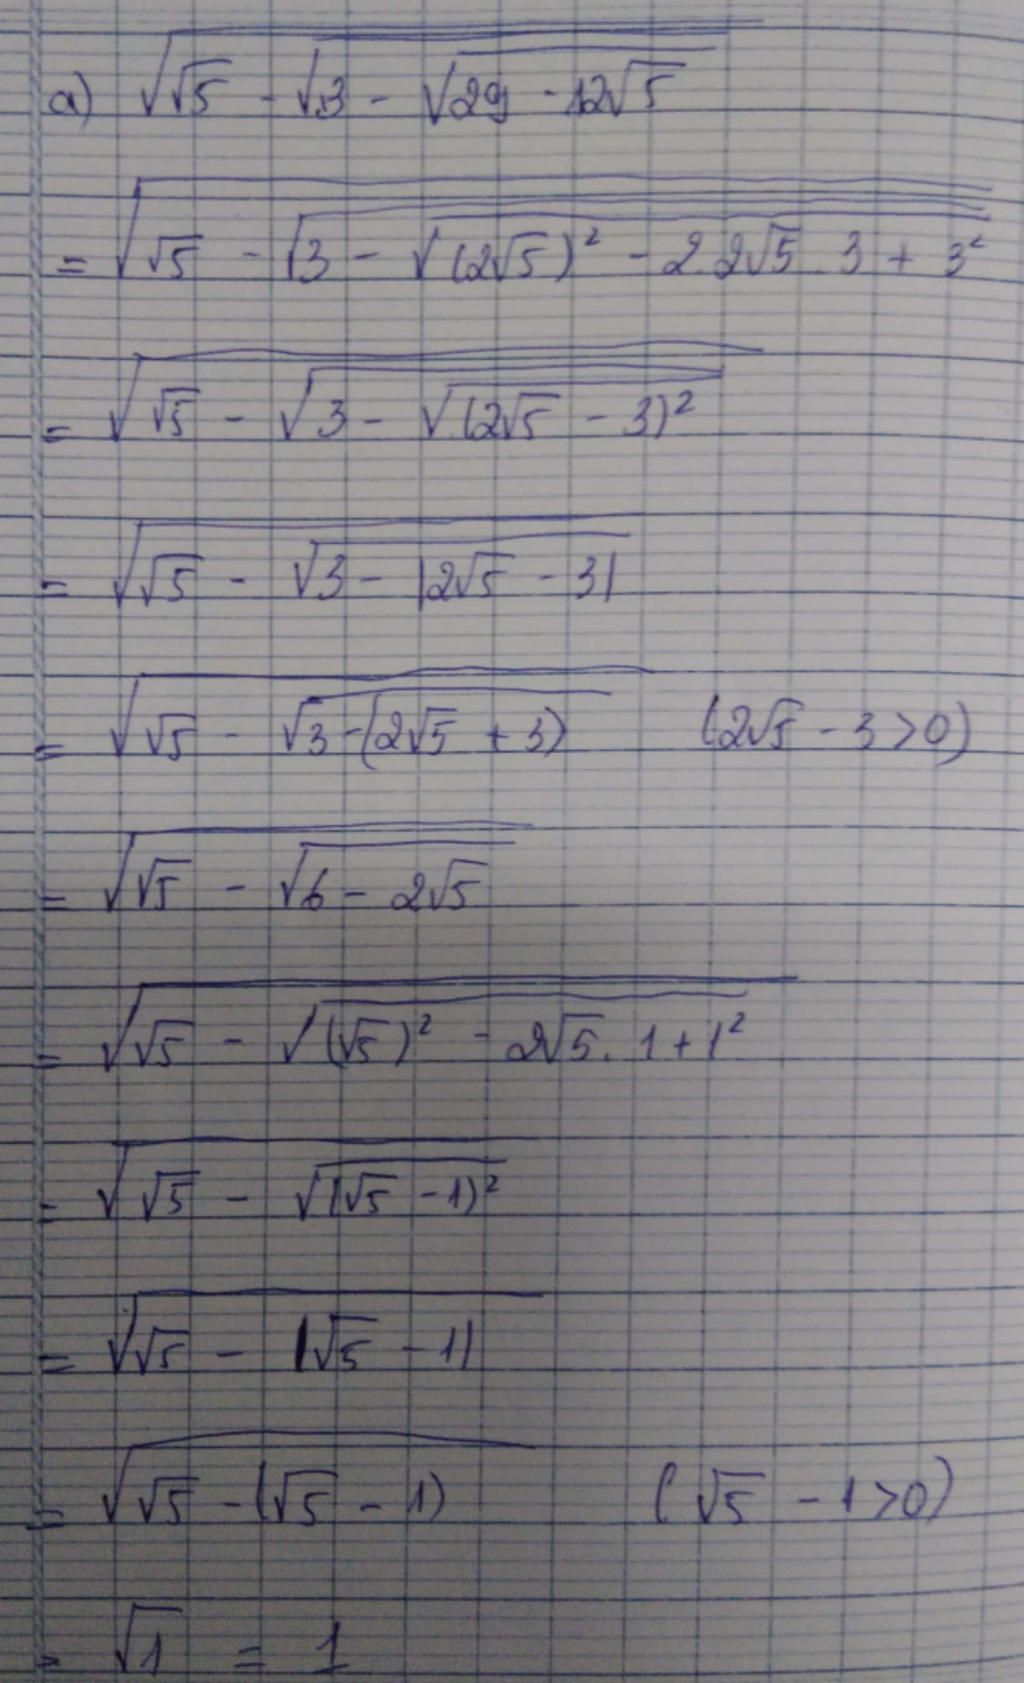 a) √(√5 - √(3 - √(29 - 12√5)))
= √(√5 - √(3 - √((2√5)² - 2.2√5.3 + 3²)))
= √(√5 - √(3 - √((2√5 - 3)²)))
= √(√5 - √(3 - |2√5 - 3|))
= √(√5 - √(3 - (2√5 + 3))) (2√5 - 3 > 0)
= √(√5 - √(6 - 2√5))
= √(√5 - √((√5)² - 2√5.1 + 1²))
= √(√5 - √((√5 - 1)²))
= √(√5 - |√5 - 1|)
= √(√5 - (√5 - 1)) (√5 - 1 > 0)
= √1 = 1